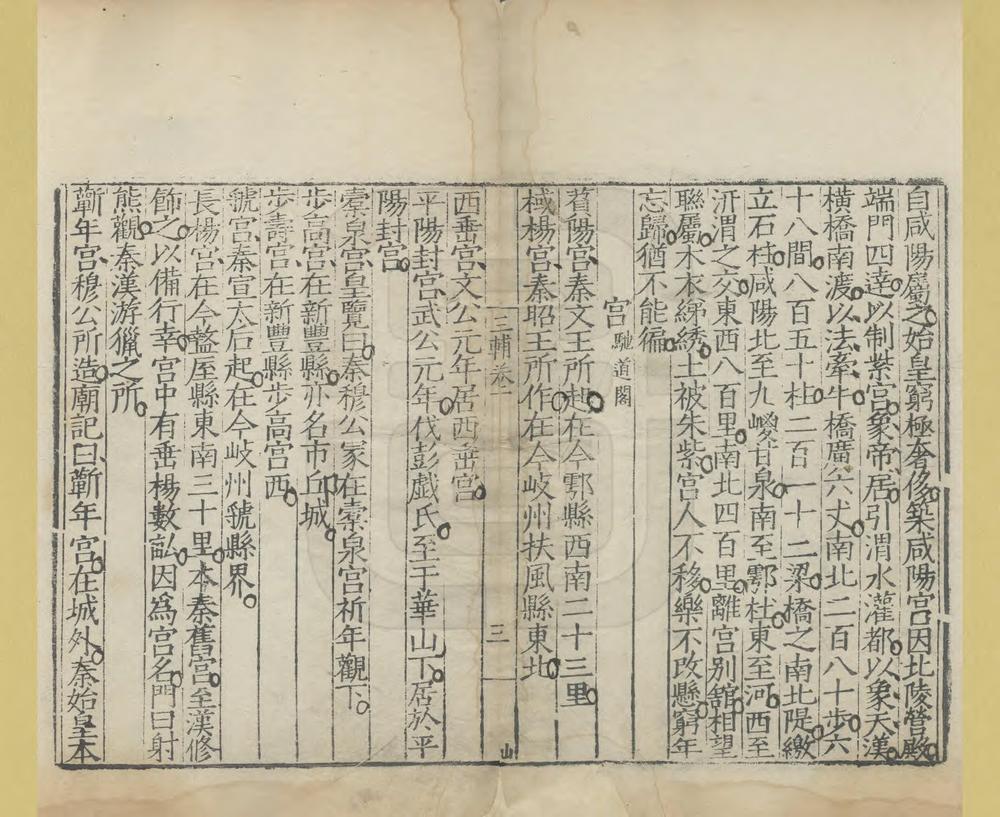 自咸陽屬之始皇窮極奢侈築咸陽宫因北陵營殿
端門四達以制紫宫象帝居引渭水灌都以象天漢
橫橋南渡以法牽牛橋廣六丈南北二百八十步六
十八間八百五十柱二百一十二梁橋之南北隄繳
立石柱咸陽北至九嵕甘泉南至鄠杜東至河西至
汧渭之交東西八百里南北四百里離宫别舘相望
聯屬木衣綈綉土被朱紫宫人不移樂不改懸窮年
忘歸猶不能徧
宫 馳道閣
萯陽宫秦文王所起在今鄠縣西南二十三里
棫楊宫秦昭王所作在今岐州扶風縣東北
三輔卷一
三
山
西垂宫文公元年居西垂宫
平陽封宫武公元年伐彭戲氏至于華山下居於平
陽封宫
橐泉宫皇覽曰秦穆公冢在橐泉宫祈年觀下
步高宫在新豐縣亦名市丘城
步壽宫在新豐縣步高宫西
虢宫秦宣太后起在今岐州虢縣界
長楊宫在今盩厔縣東南三十里本秦舊宫至漢修
飾之以備行幸宫中有垂楊數畝因爲宫名門曰射
熊觀秦漢游獵之所
蘄年宫穆公所造廟記曰蘄年宫在城外秦始皇本